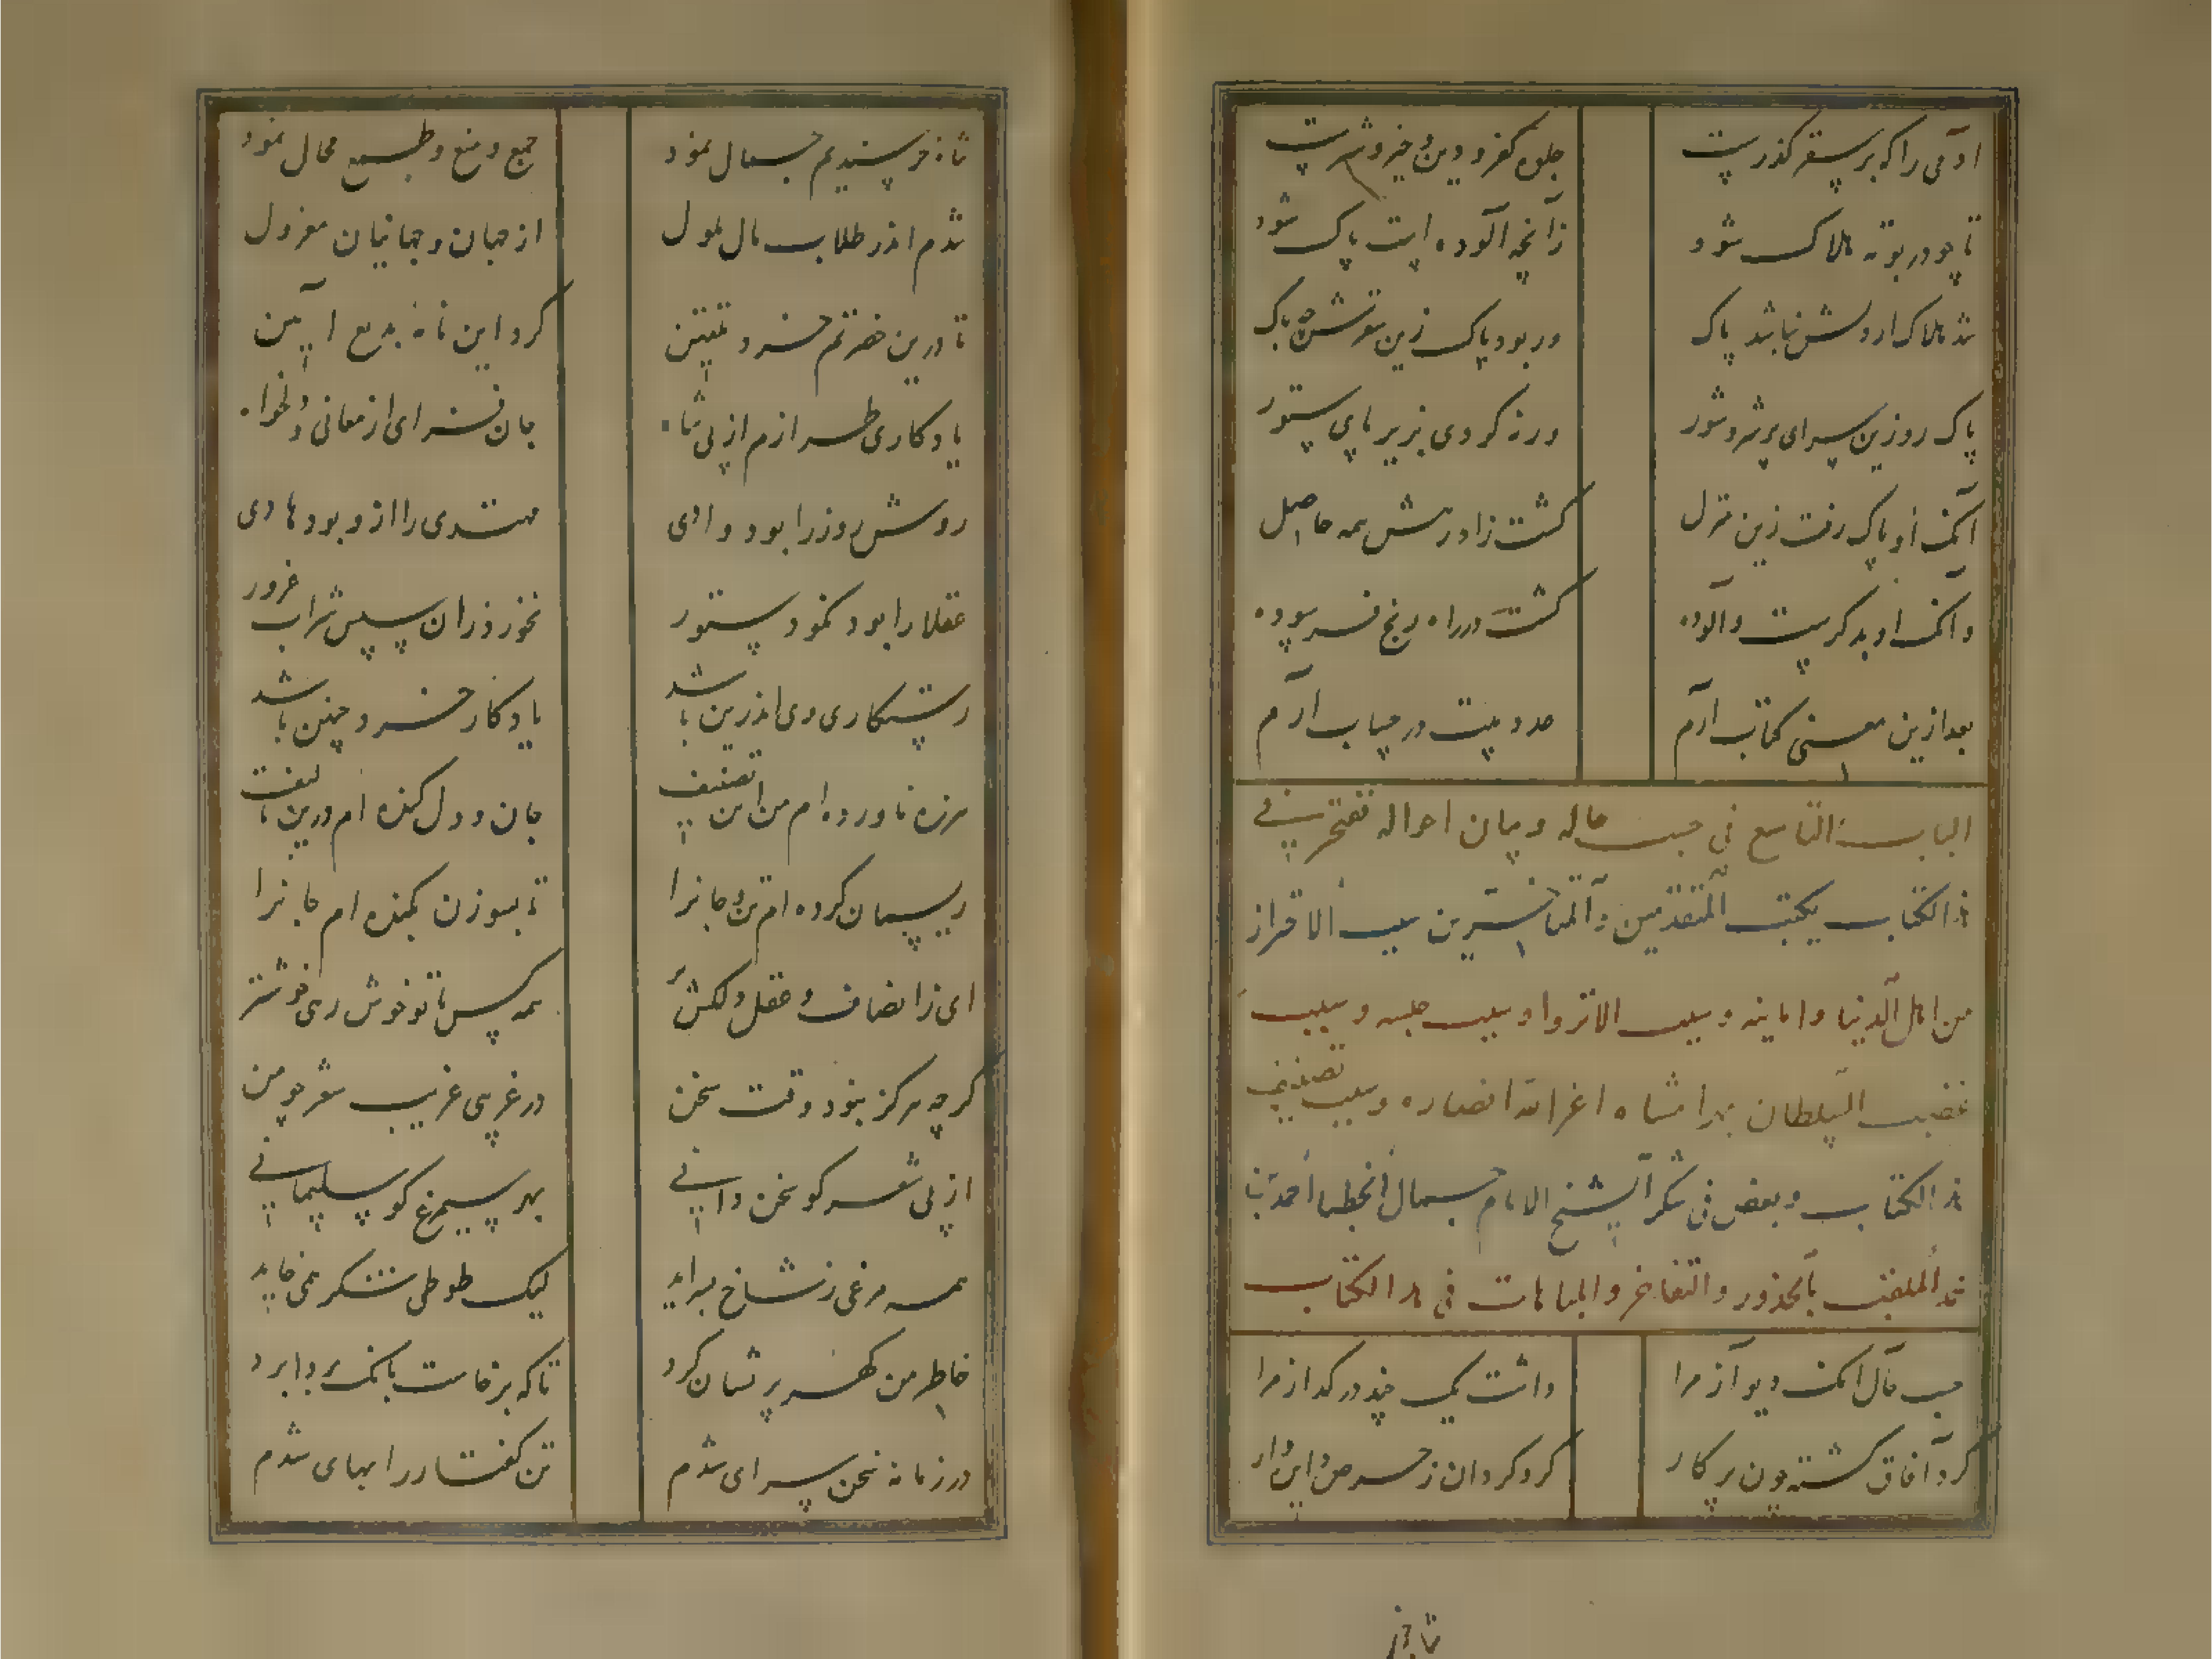 آدمی را که بر سقر گذرست
جلوه کفر و دین و خیر و شرست
تا چو در بوته هلاک شود
زانچه آلوده است پاک شود
شد هلاک ار روش نباشد پاک
ور بود پاک زین سقر شده باک
پاک رو زین سرای پر شر و شور
ورنه گردی بزیر پای ستور
آنک او پاک رفت زین منزل
گشت زاد رهش همه حاصل
وانک او بدگرست و آلوده
گشت در راه رنج فرسوده
بعد ازین معنی کتاب آرم
صد و بیست در حساب آرم
الباب التاسع فی حسب حاله و بیان احواله تفتخر فی
هذا الکتاب بکتب المتقدمین والمتاخرین سبب الاقراز
من اهل الدنیا و اماینه و سبب الانزوا و سبب حبسه و سبب
غضب السلطان بهرامشاه اعز الله انصاره و سبب تصنیف
هذا الکتاب و بعض فی شکر الشیخ الامام جمال الخطبا احمد بنا
محمد الملقب بالحذور والتفاخر والمباهات فی هذا الکتاب
حسب حال آنک دیو آز مرا
داشت یک چند در گداز مرا
گرد آفاق گشته چون پرکار
گرد گردان ز حرص دایره وار
شاه خرسندیم جمال نمود
جمع و منع و طمع محال نمود
شدم اندر طلاب مال ملول
از جهان و جهانیان معزول
تا درین حضرتم خرد تلقین
کرد این نامه بدیع آیین
یادگاری طرازم از پی شاه
جان فزای از معانی دلخواه
روش روز را بود وادی
مهتدی را ازو بود هادی
عقلا را بود نمود ستور
نخورد زان سپس شراب غرور
رستگاری وی اندرین باشد
یادگار خرد چنین باشد
هرزه ناورده ام من این تصنیف
جان و دل کنده ام درین تالیف
ریسمان کرده ام تن و جانرا
تا بسوزن بکنده ام جانرا
ای ز انصاف و عقل دلکش تر
همه کس با تو خوش رهی خوشتر
گرچه هرگز نبود وقت سخن
در غریبی غریب شعر چو من
از پی شعر کو سخن دانی
بهر سیمرغ کو سلیمانی
همه مرغی ز شاخ بسراید
لیک طوطی شکر همی خاید
خاطر من گهر پریشان کرد
تا که برخاست بانک بردابرد
در زمانه سخن سرای شدم
تن گفتار را بهای شدم